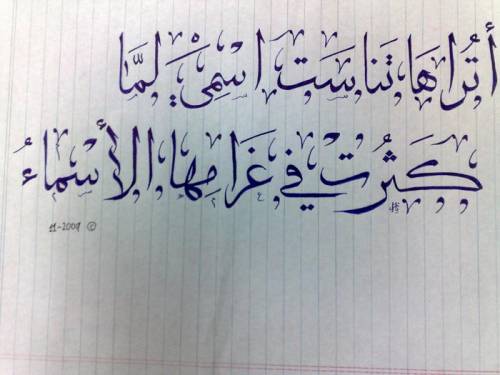 أتُرَاهَا تَنَاسَت اسْمِيْ لمَّا
كَثُرتْ في غَرَامِها الأسْمَاءُ
11-2009 ©